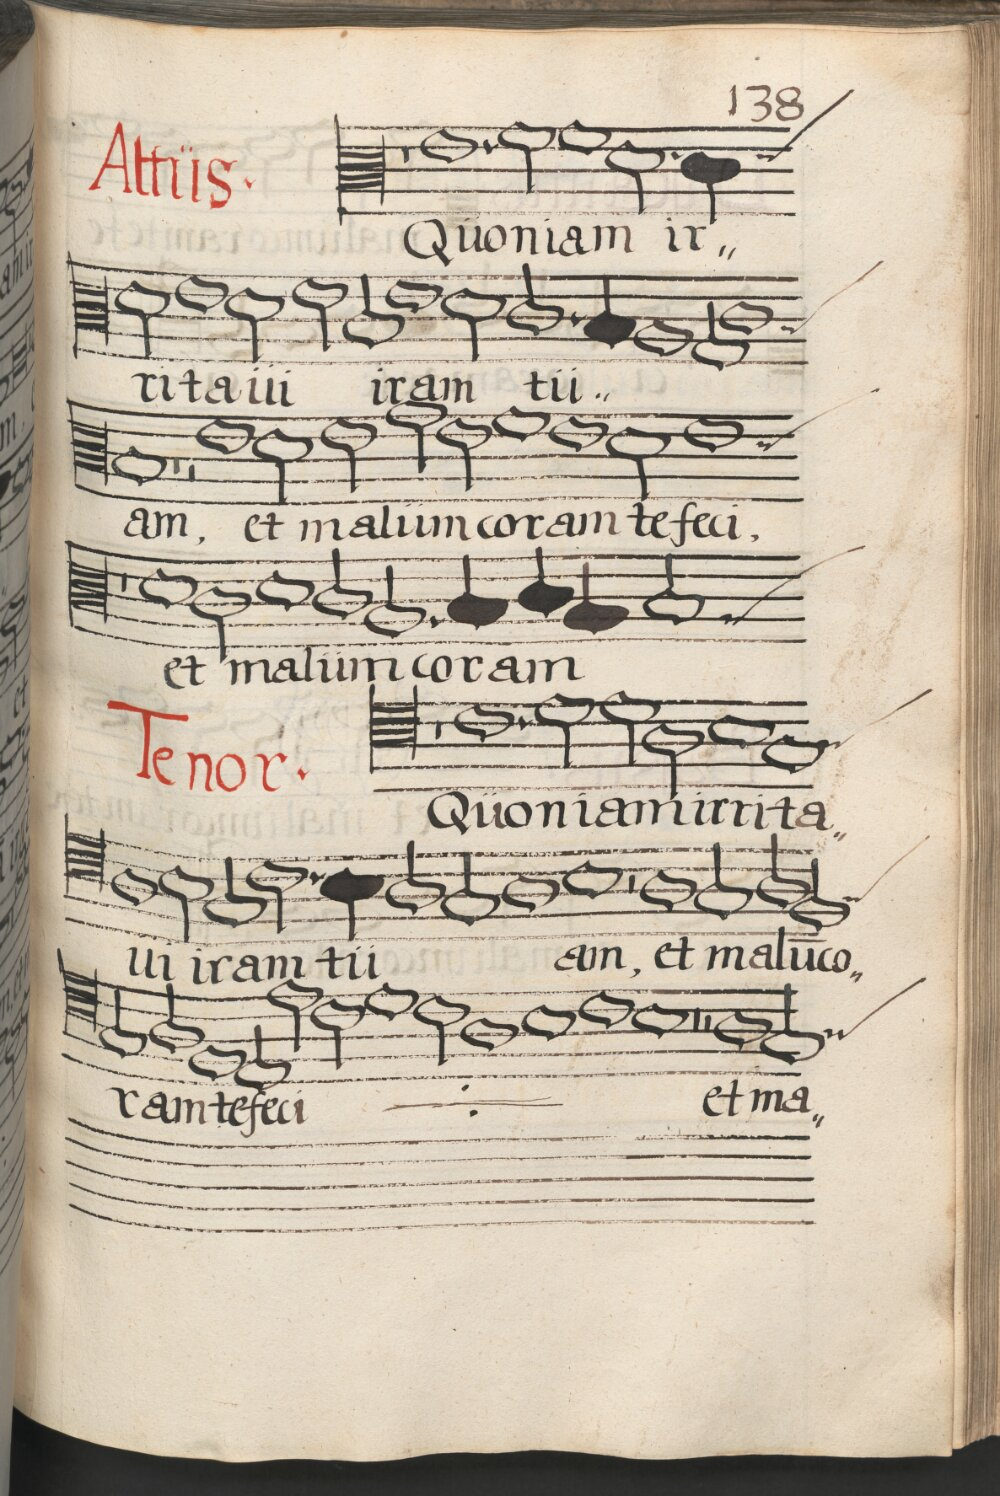 138
Altüs.
Qüoniam ir„
ritaüi iram tü„
am, et malüm coram te feci,
et malüm coram
Tenor.
Qüoniam irrita„
üi iram tü am, et malūco„
ram te feci et ma„